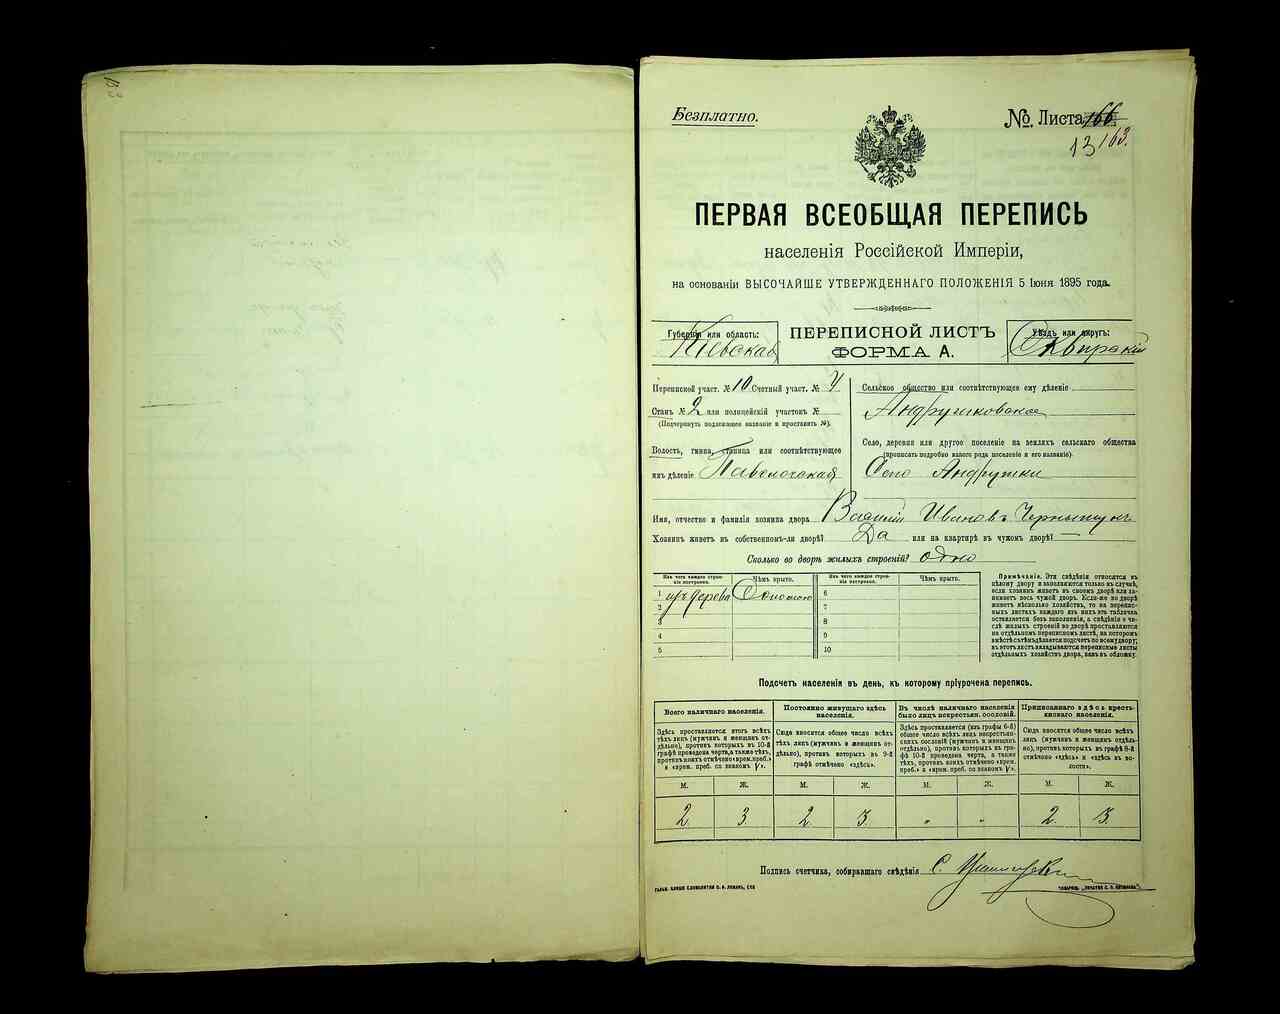 Безплатно.
№ Листа 166
13 163.
ПЕРВАЯ ВСЕОБЩАЯ ПЕРЕПИСЬ
населенія Россійской Имперіи,
на основаніи ВЫСОЧАЙШЕ УТВЕРЖДЕННАГО ПОЛОЖЕНІЯ 5 Іюня 1895 года.
Губернія или область:
Кіевская
ПЕРЕПИСНОЙ ЛИСТЪ
ФОРМА А.
Уѣздъ или округъ:
Сквирскій
Переписной участ. № 10 Счетный участ. № 4
Станъ № 2 или полицейскій участокъ №
(Подчеркнуть подлежащее названіе и проставить №).
Волость, гмина, станица или соотвѣтствующее
имъ дѣленіе Паволочская
Сельское общество или соотвѣтствующее ему дѣленіе
Андрушковское
Село, деревня или другое поселеніе на земляхъ сельскаго общества
(прописать подробно какого рода поселеніе и его названіе).
Село Андрушки
Имя, отчество и фамилія хозяина двора Василій Ивановъ
Хозяинъ живетъ въ собственномъ-ли дворѣ? Да или на квартирѣ въ чужомъ дворѣ? —
Сколько во дворѣ жилыхъ строеній? одно
Изъ чего каждое строеніе построено.
Чѣмъ крыто.
Изъ чего каждое строеніе построено.
Чѣмъ крыто.
1 изъ дерева Соломою
2
3
4
5
6
7
8
9
10
Примѣчаніе. Эти свѣдѣнія относятся къ
цѣлому двору и заполняются только въ случаѣ,
если хозяинъ живетъ въ своемъ дворѣ или занимаетъ
весь чужой дворъ. Если-же во дворѣ
живетъ нѣсколько хозяйствъ, то на переписныхъ
листахъ каждаго изъ нихъ эта табличка
оставляется безъ заполненія, а свѣдѣнія о числѣ
жилыхъ строеній во дворѣ проставляются
на отдѣльномъ переписномъ листѣ, на которомъ
вмѣстѣ съ тѣмъ дѣлается подсчетъ по всему двору;
въ этотъ листъ вкладываются переписные листы
отдѣльныхъ хозяйствъ двора, какъ въ обложку.
Подсчетъ населенія въ день, къ которому пріурочена перепись.
Всего наличнаго населенія.
Здѣсь проставляется итогъ всѣхъ
тѣхъ лицъ (мужчинъ и женщинъ отдѣльно),
противъ которыхъ въ 10-й
графѣ проведена черта, а также тѣхъ,
противъ коихъ отмѣчено «врем. преб.»
и «врем. преб. со знакомъ V».
Постоянно живущаго здѣсь
населенія.
Сюда вносится общее число всѣхъ
тѣхъ лицъ (мужчинъ и женщинъ отдѣльно),
противъ которыхъ въ 9-й
графѣ отмѣчено «здѣсь».
Въ числѣ наличнаго населенія
было лицъ некрестьян. сословій.
Здѣсь проставляется (изъ графы 6-й)
общее число всѣхъ лицъ некрестьянскихъ
сословій (мужчинъ и женщинъ
отдѣльно), противъ которыхъ въ графѣ
10-й проведена черта, а также
тѣхъ, противъ коихъ отмѣчено «врем.
преб.» и «врем. преб. со знакомъ V».
Приписаннаго здѣсь крестьянскаго
населенія.
Сюда вносится общее число всѣхъ
лицъ (мужчинъ и женщинъ отдѣльно),
противъ которыхъ въ графѣ 8-й
отмѣчено «здѣсь» и «здѣсь въ волости».
М. Ж. М. Ж. М. Ж. М. Ж.
2 3. 2 3. „ „ 2. 3.
Подпись счетчика, собиравшаго свѣдѣнія С.